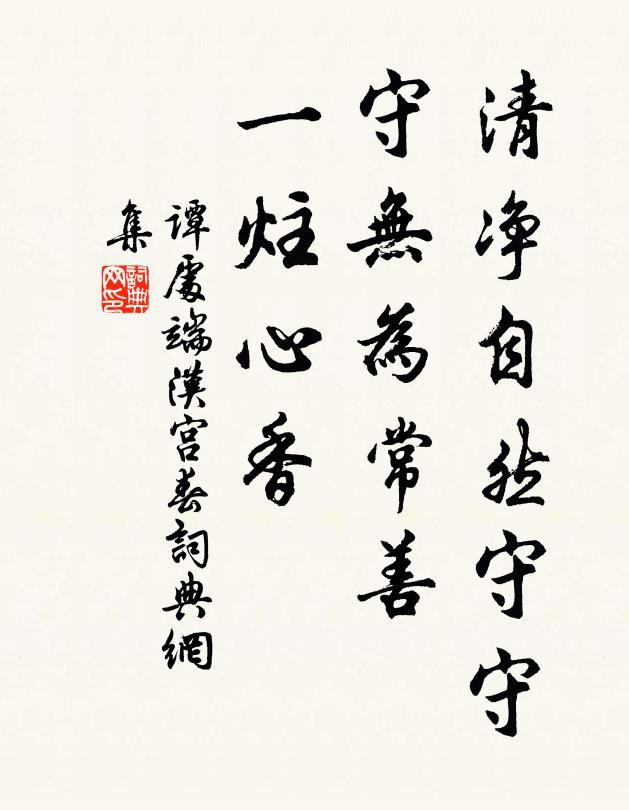 清淨自然守守
守無為常善
一炷心香
譚處端漢宮春詞典網
集
詞典網印